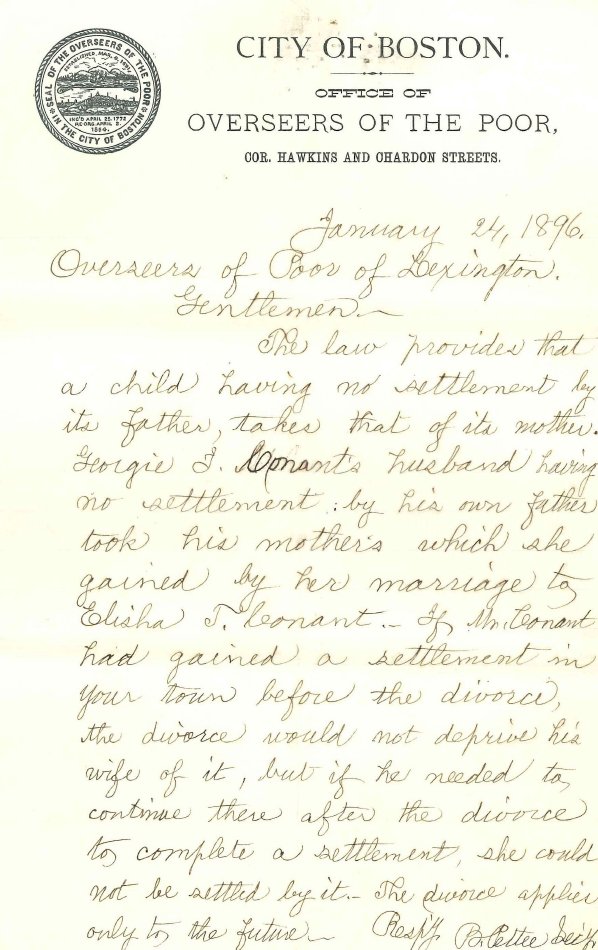 SEAL OF THE OVERSEERS OF THE POOR
IN THE CITY OF BOSTON
INC'D APRIL 25, 1772
RE.ORG. APRIL 2.
1864.
CITY OF BOSTON.
OFFICE OF
OVERSEERS OF THE POOR,
COR. HAWKINS AND CHARDON STREETS.
January 24, 1896.
Overseers of Poor of Lexington.
Gentlemen—
The law provides that
a child having no settlement by
its father, takes that of its mother.
Georgie F. Conant's husband having
no settlement by his own father
took his mothers which she
gained by her marriage to
Elisha T. Conant. — If Mr. Conant
had gained a settlement in
your town before the divorce,
the divorce would not deprive his
wife of it, but if he needed to
continue there after the divorce
to complete a settlement, she could
not be settled by it. — The divorce applies
only to the future — Resp'y B. Pettee Sec'y